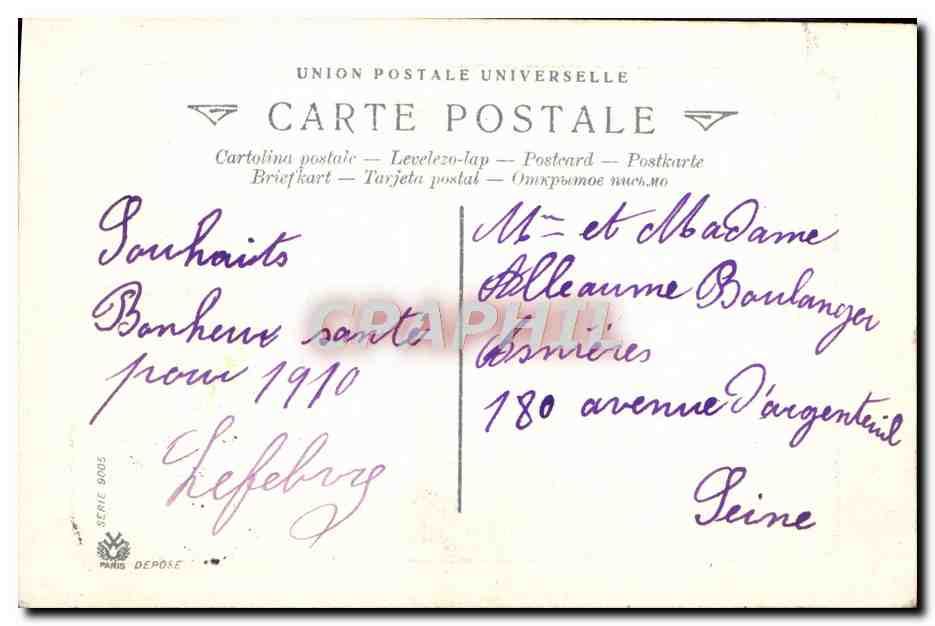 UNION POSTALE UNIVERSELLE
CARTE POSTALE
Cartolina postale — Levelezo-lap — Postcard — Postkarte
Briefkart — Tarjeta postal — Открытое письмо
Souhaits
Bonheur santé
pour 1910
Lefebvre
Mr et Madame
Alleaume Boulanger
Asnières
180 avenue d'argenteuil
Seine
CPAPHIL
SERIE 9005
PARIS DEPOSE